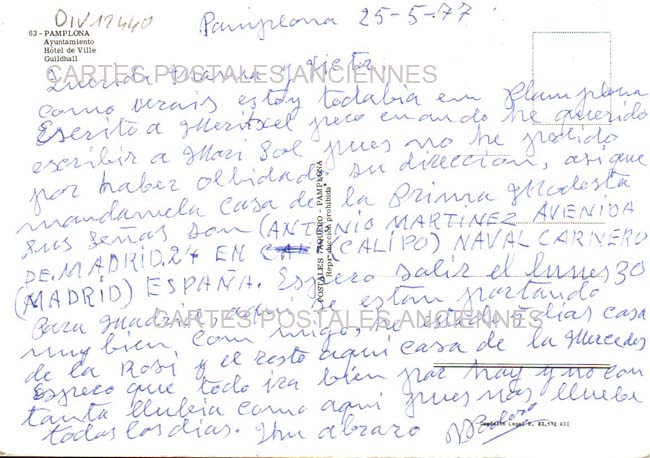 DIV12440
Pamplona 25-5-77
63 - PAMPLONA
Ayuntamiento
Hôtel de Ville
Guildhall
CARTES POSTALES ANCIENNES
Querida Mama y
como verais estoy todabia em Pamplona
Escrito a Meritxel pero cuando he querido
escribir a Mari Sol pues no he podido
por haber olbidado su direccion, asi que
mandamela casa de la Prima Modesta
sus señas son (ANTONIO MARTINEZ AVENIDA
DE MADRID. 24 EN (CALIPO) NAVAL CARNERO
(MADRID) ESPAÑA. Espero salir el lunes 30
Para Madrid, aqui se estan portando
muy bien com migo, he estado dias casa
de la Rosi y el resto aqui casa de la Mercedes
Espero que todo ira bien por hay y no con
tanta llubia como aqui pues nos llueba
todos los dias. Un abrazo
POSTALES VAQUERO - PAMPLONA
Reproducción prohibida
CARTES POSTALES ANCIENNES
Depósito Legal B. 23.172 XII